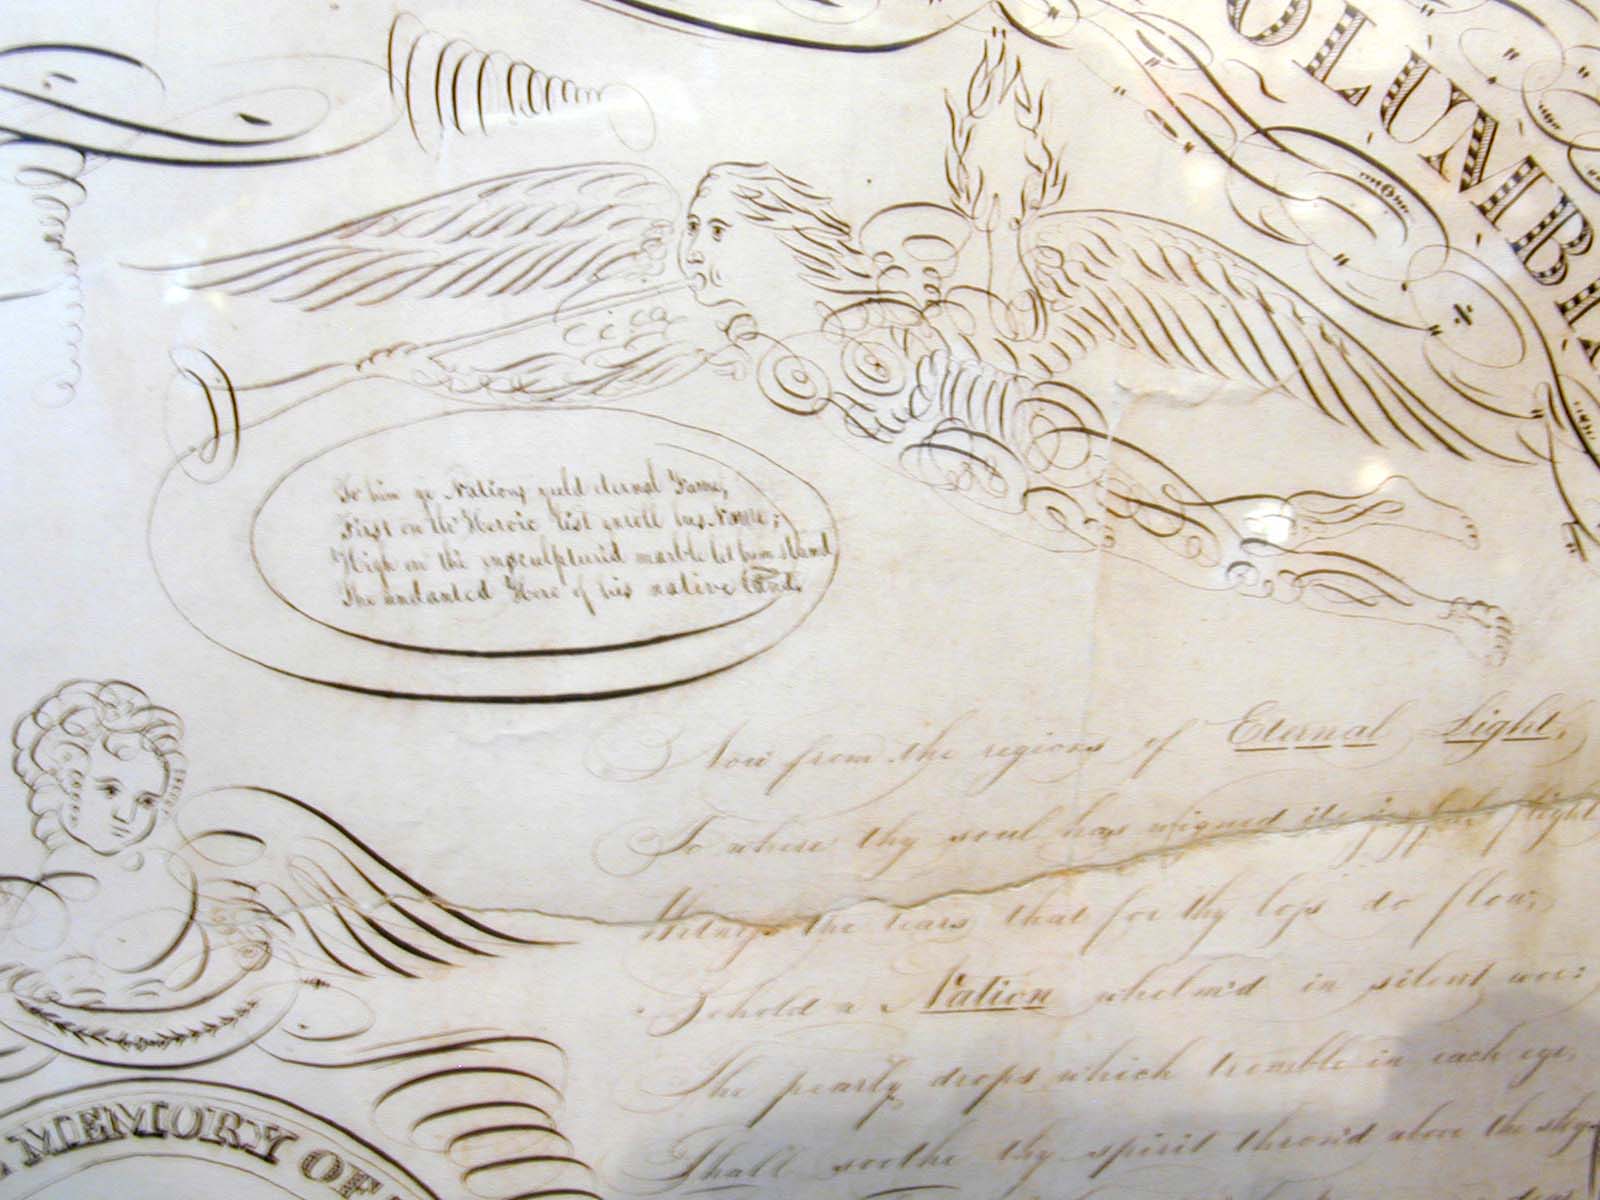 OLUMBIA
To him ye Nations yield eternal Fame,
First on the Heroic list enroll his Name;
High on the insculptured marble let him stand
The undanted Hero of his native land.
Now from the regions of Eternal Light,
To where thy soul has wigned its joyful flight
Witness the tears that for thy loss do flow,
Behold a Nation whelm'd in silent woe:
The pearly drops which tremble in each eye,
Shall soothe thy spirit thron'd above the sky
MEMORY OF